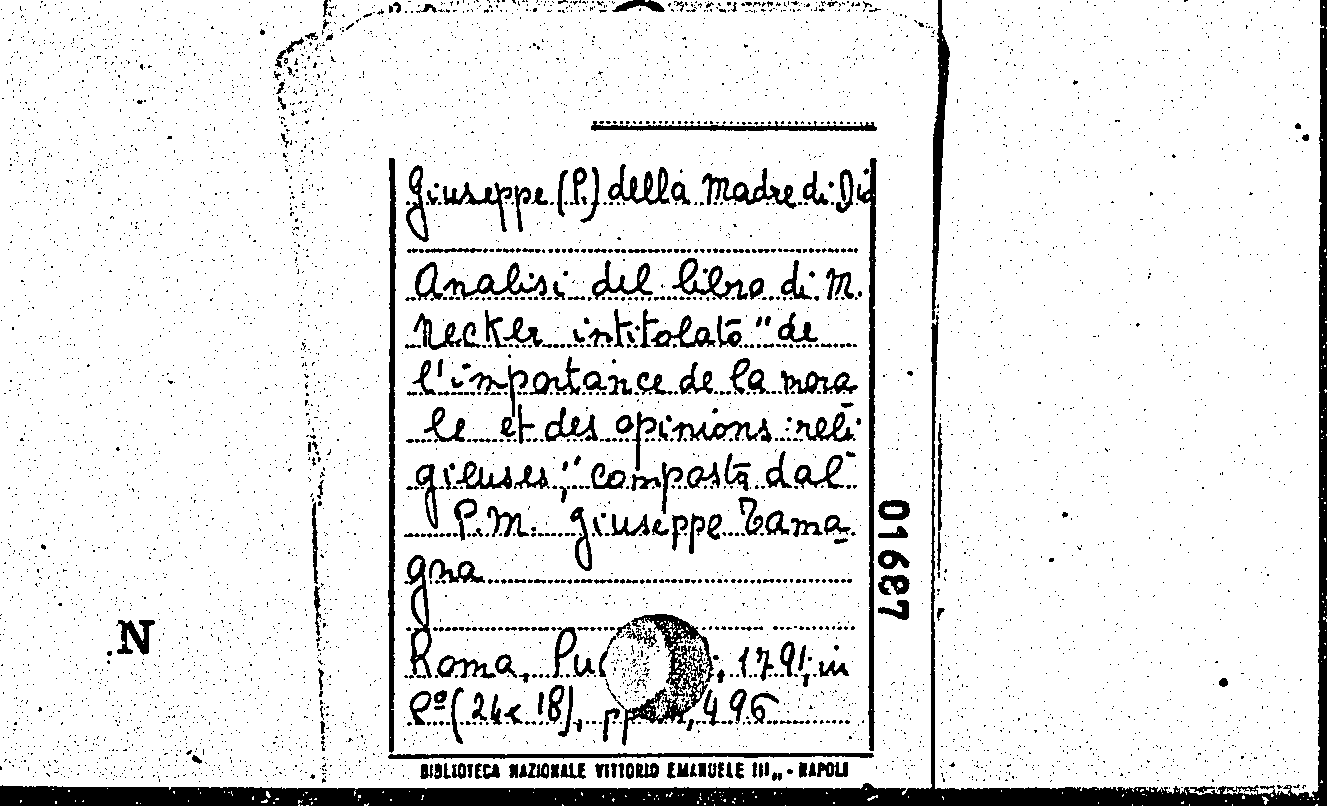 Giuseppe (P.) della Madre di Dio
Analisi del libro di M.
Necker intitolato "de
l'importance de la mora
le et des opinions reli
gieuses," composta dal
P.M. Giuseppe Tama-
gna
Roma, 1791, in
8º (24x18), 496
BIBLIOTECA NAZIONALE VITTORIO EMANUELE III„ - NAPOLI
01687
N